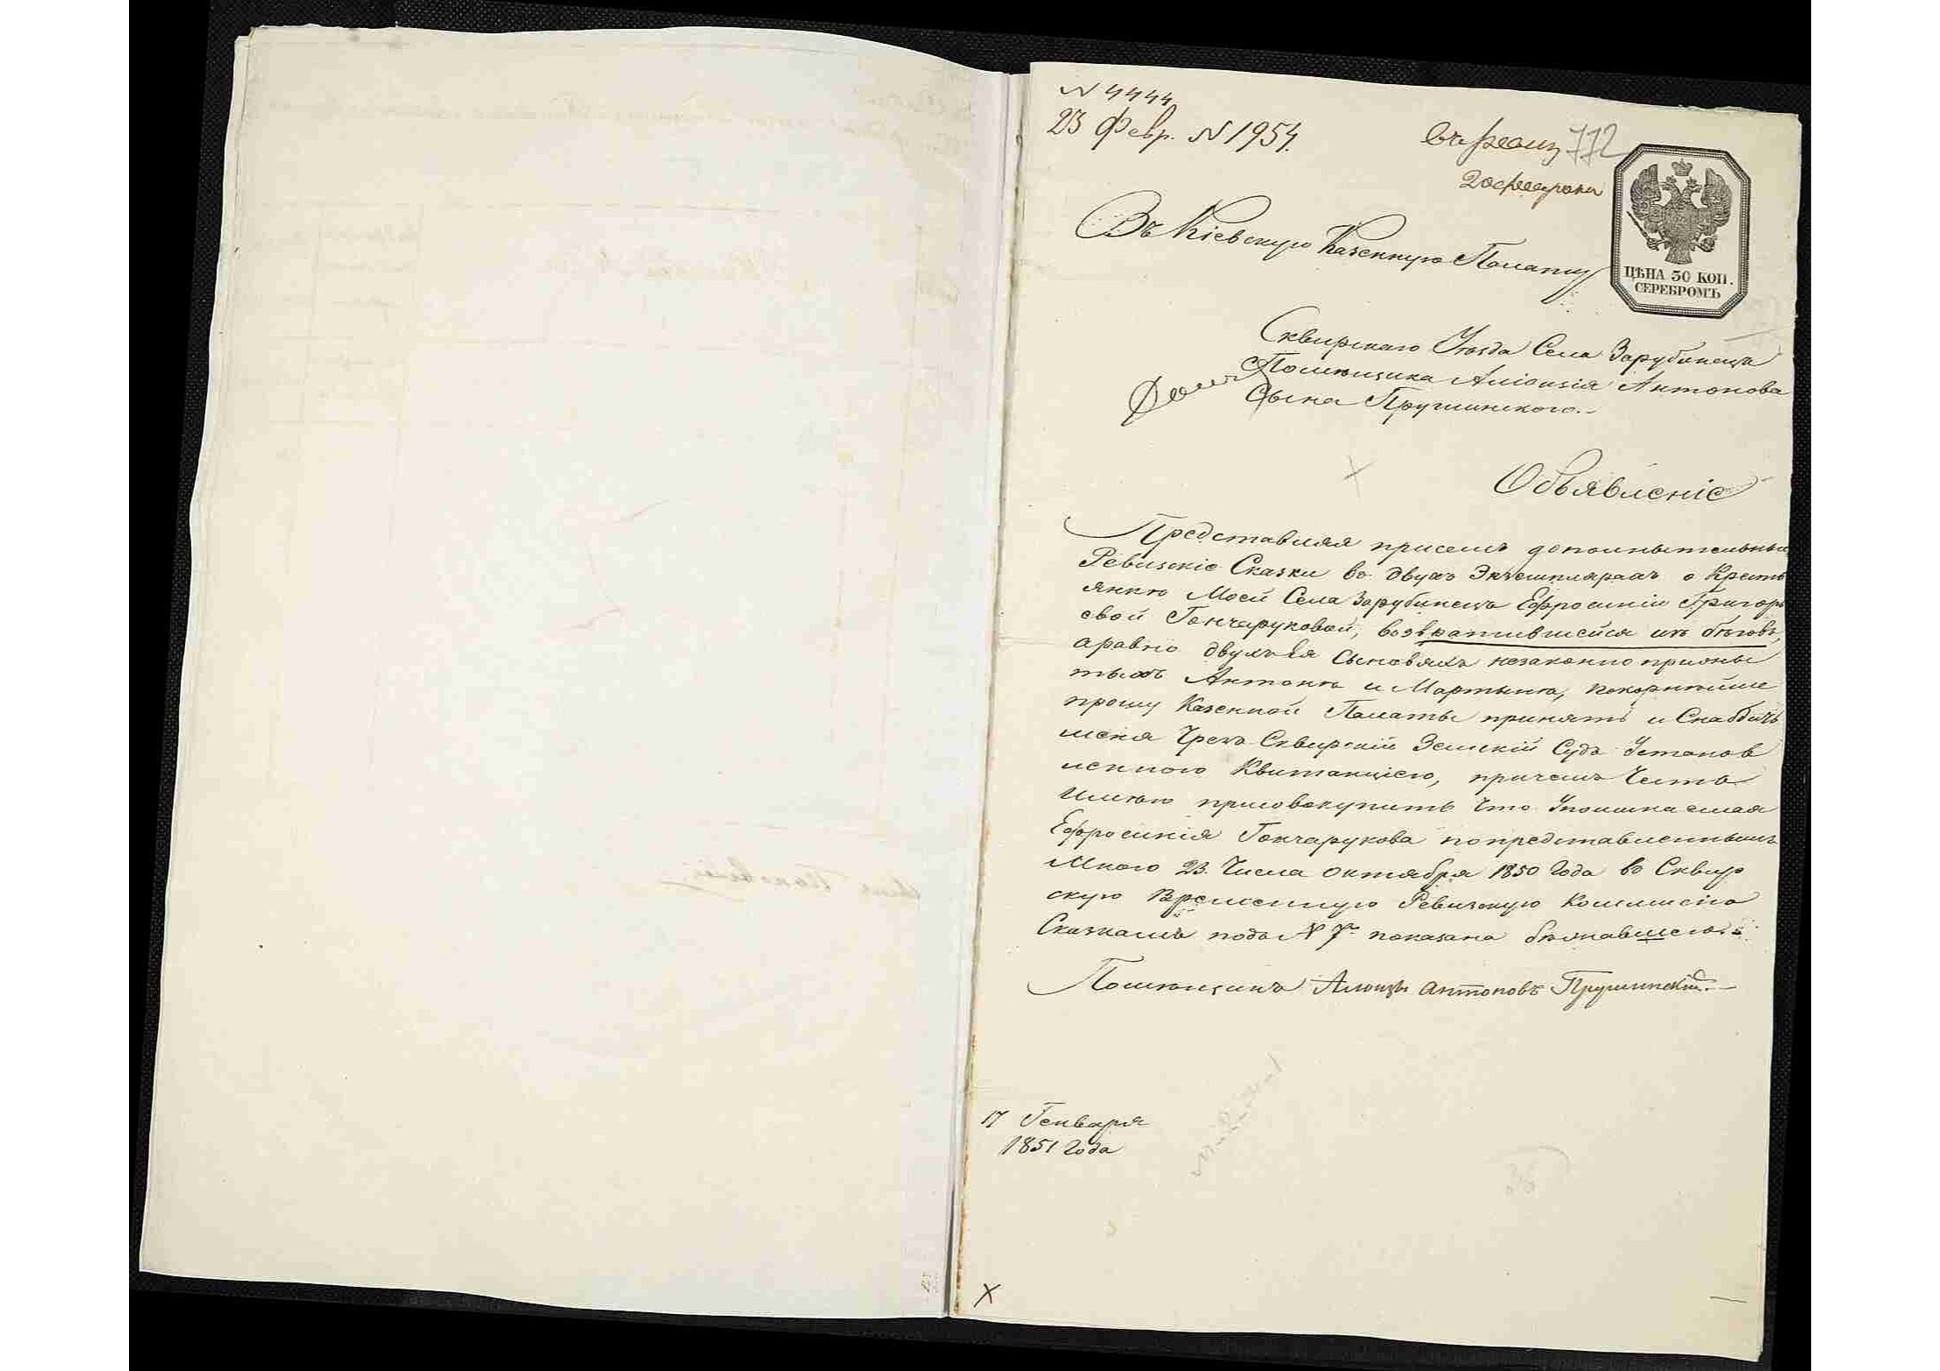 N 4444
23 Февр. N 1954.
772
20 февраля
Въ Кіевскую Казенную Полату
ЦѢНА 30 КОП.
СЕРЕБРОМЪ
Сквирскаго Уѣзда Села Зарубинецъ
Помѣщика Алоизія Антонова
Сына Прушинского.
Объявленіе
Представляя присемъ дополнытельные
Ревизскіе Сказки во двухъ Экземплярахъ о Кресть
янкѣ Моей Села Зарубинецъ Ефросиніи Григорь
евой Гончаруковой, возвратившейся изъ бѣговъ,
аравно двухъ ея Сыновяхъ незаконно прижы
тыхъ Антонѣ и Мартынѣ, покорнѣйше
прошу Казенной Палаты принять и Снабдить
меня Чрезъ Сквирскій Земскій Судъ Установ
ленною Квитанціею, причемъ Честь
Имѣю присовокупить Что Упоминаемая
Ефросинія Гончарукова попредставленнымъ
Мною 23. Числа октября 1850 Года во Сквир
скую Временную Ревизскую Коммисію
Сказкамъ подъ N 7 показана бѣжавшею.
Помѣщикъ Алоизъ Антоновъ Прушинскій.
17 Генваря
1851 Года